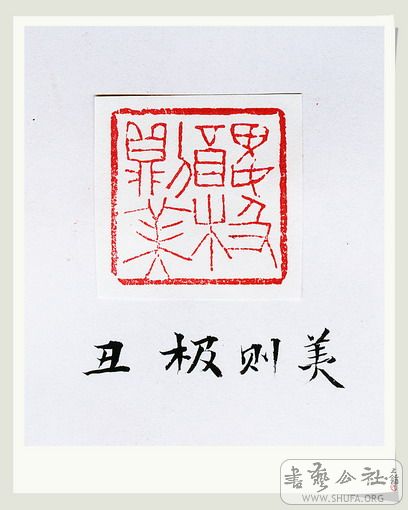 醜极
則美
丑极则美
書藝公社
WWW.SHUFA.ORG